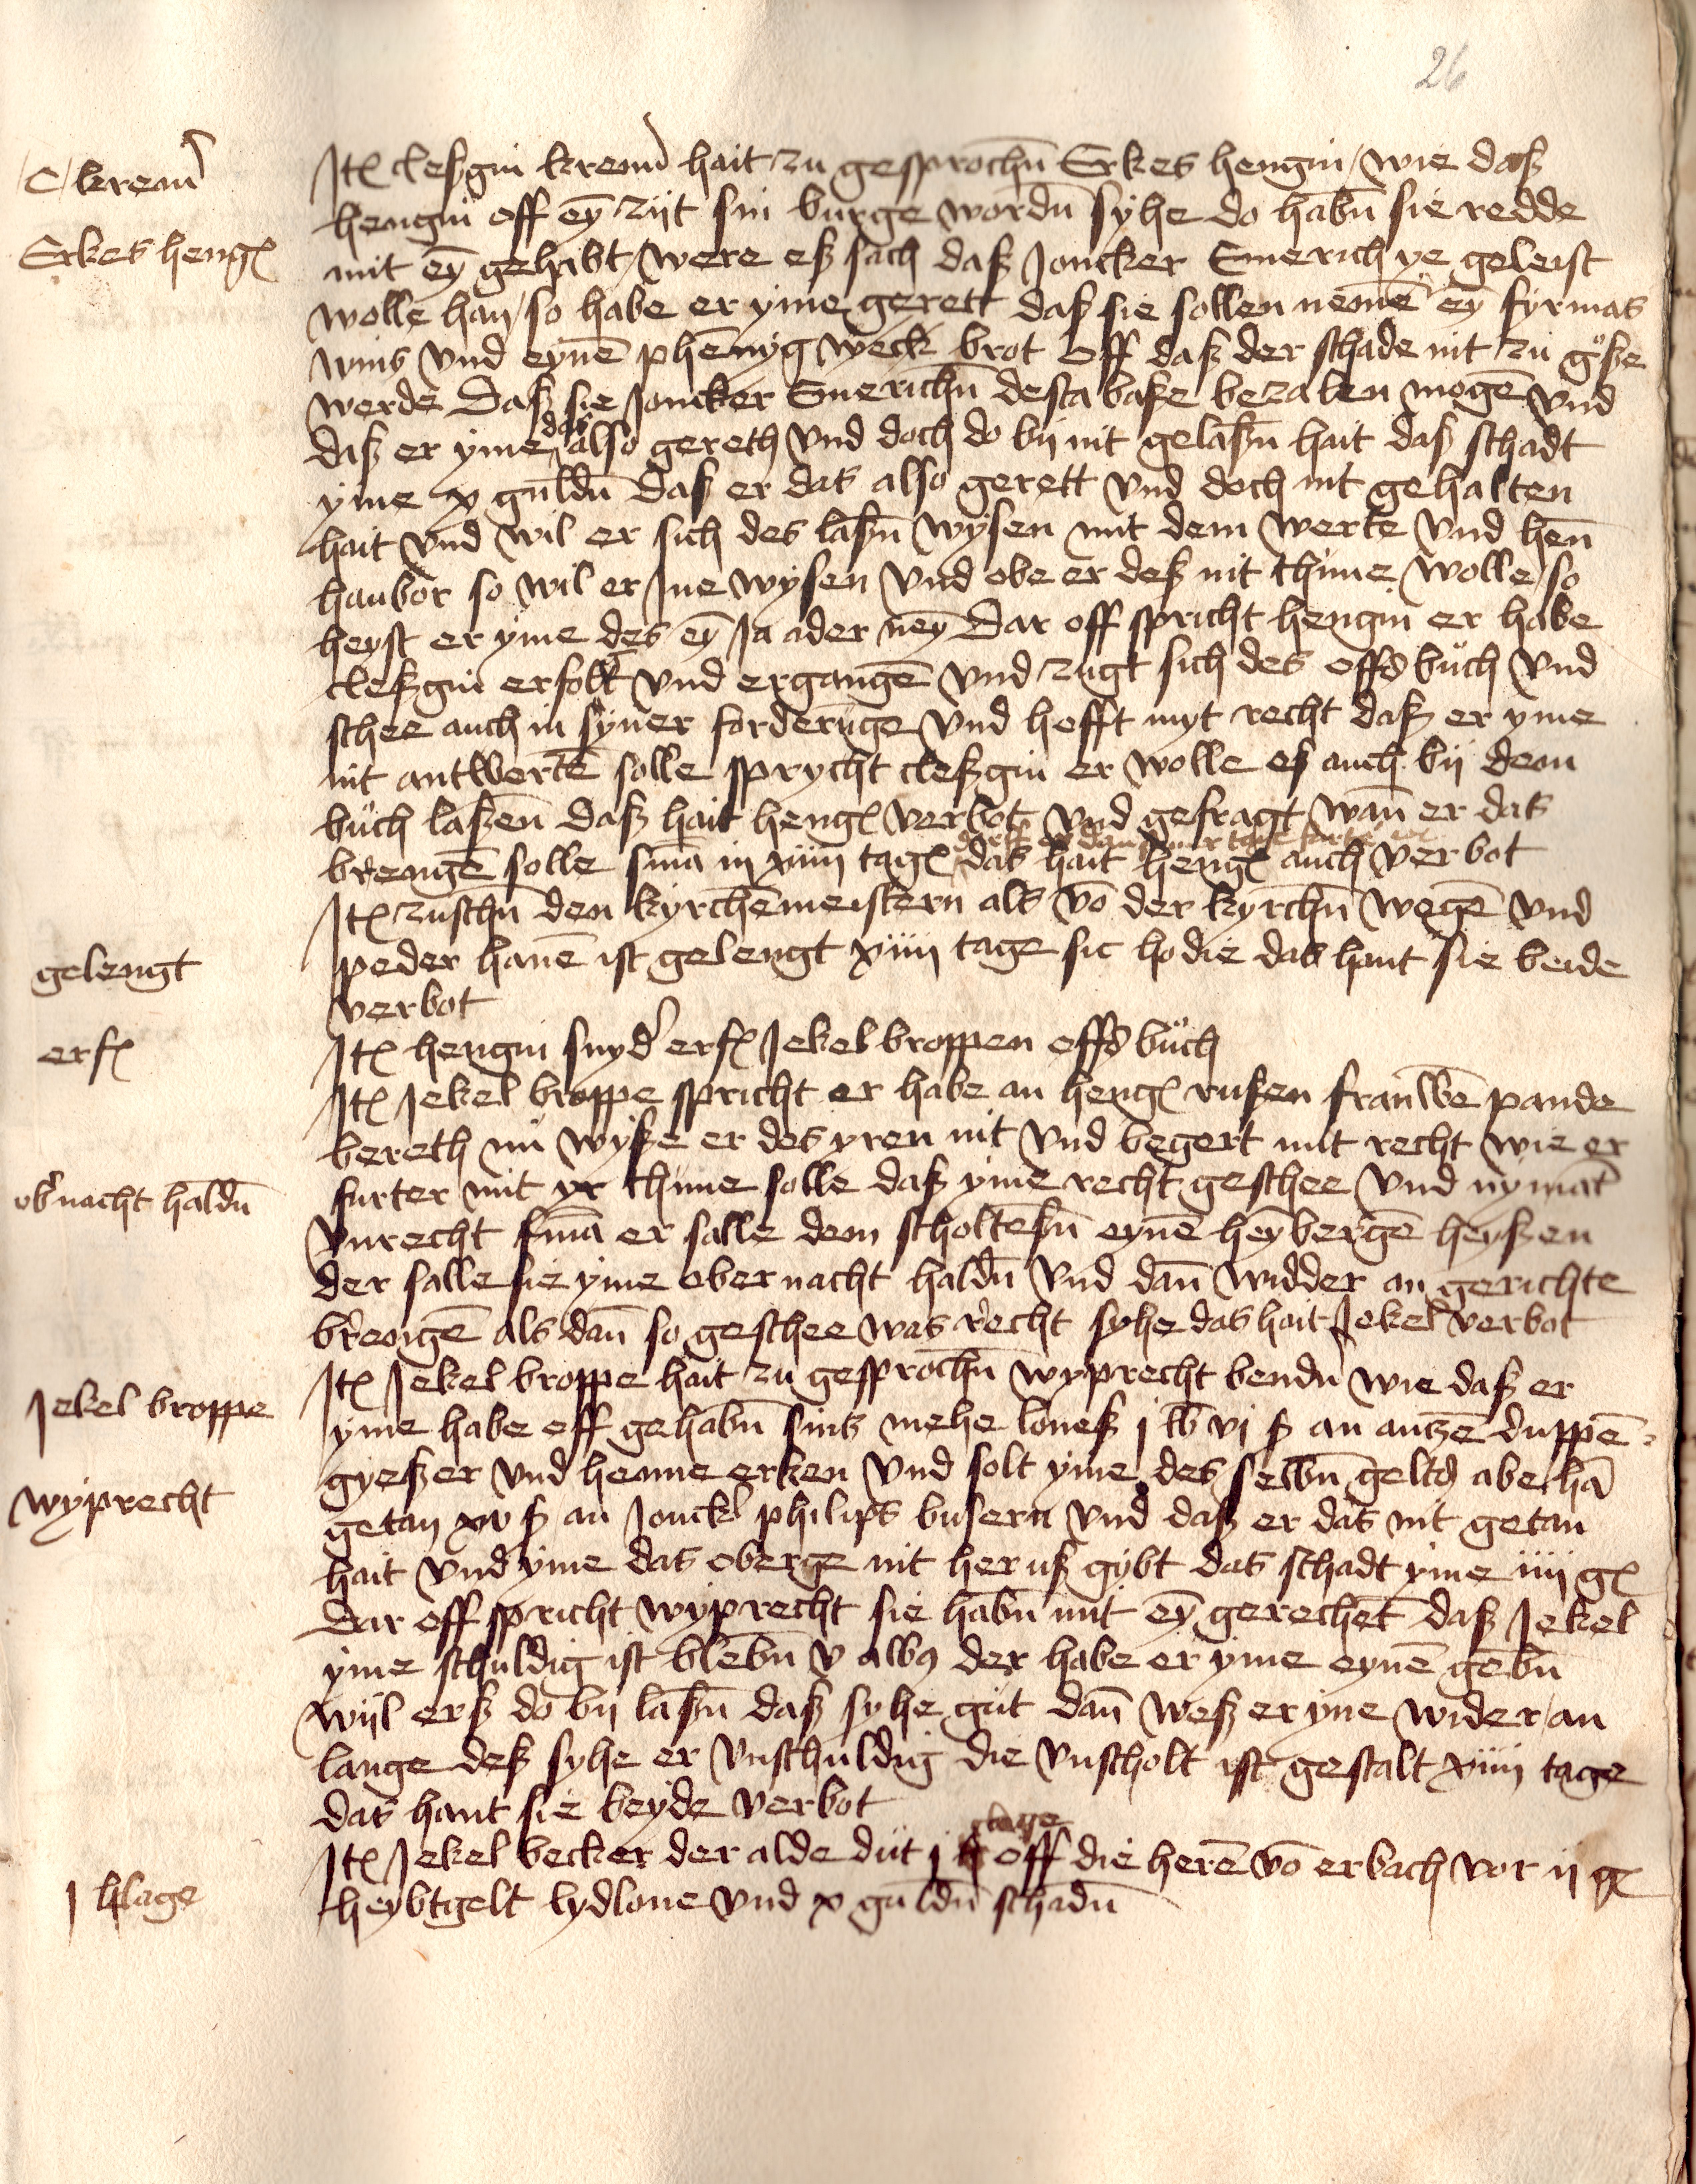 26
C kremer
Itē cleßgin kremer hait zu gesprochn̄ Erkes hengin / wie daß
hengin off eȳ zijt sin burge wordn̄ syhe do habn̄ sie redde
Erkes heng
mit eȳ gehabt / were eß sach daß Joncker Emerich ye geleist
wolle han / so habe er yme gerett daß sie sollen nemē eȳ fyrmas
wins vnd eynē phēnyg weck brot Off daß der schade nit zu gͦße
werde Daß sie Joncker Emerichn̄ desta baße bezalen mogē vnd
daß er yme das also gereth vnd doch do bij nit gelaßn̄ hait daß schadt
yme x guldn̄ Daß er das also gerett vnd doch nit gehalten
hait vnd wil er sich des laßn̄ wysen mit dem werte vnd hen̄
hanbor so wil er Ine wysen vnd obe er deß nit thüne wolle / so
heyst er yme des eȳ Ja ader neȳ Dar off spricht hengin er habe
cleßgin erfolt vnd ergangē vnd zugt sich des offs buͦch vnd
schee auch in syner forderūge vnd hofft myt recht daß er yme
nit antwertē solle sprycht cleßgin er wolle eß auch bij dem
buͦch laßen Daß hait heng verbot vnd gefragt wan̄ er das
brengē solle snīa in xiiij tag das hait heng auch verbot
Itē zuschn̄ den kyrchēmeistern als vō der kyrchn̄ wegē vnd
gelengt
peder hanē ist gelengt xiiij tage sic hodie das hant sie beide
verbot
erf
Itē hengin snyder erf Jekel broppen offs buͦch
Itē Jekel broppe spricht er habe an heng rußen frauwē pande
bereth nuͦ wyße er des yren nit vnd begert mit recht wie er
obernacht haldn̄
furter mit yr thüne solle daß yme recht geschee vnd nymāt
vnrecht snīa er salle dem scholteßn̄ eynē heȳbergē heyßen
der salle sie yme obernacht haldn̄ vnd dan̄ widder an gerichte
brēngē als dan̄ so geschee was recht syhe das hait Jekel verbot
Itē Jekel broppe hait zu gesprochn̄ wyprecht bender wie daß er
Jekel broppe
yme habe off gehabn̄ sins mehe loneß j lb vj ß an antzē duppē-
wyprecht
gyeßer vnd henne erken vnd solt yme des selbn̄ gelts abe hā
getan xv ß an Jonckr philips busern vnd daß er das nit getan
hait vnd yme das oberge nit heruß gybt das schadt yme iiij g
Dar off spricht wyprecht sie habn̄ mit eȳ gerechēt daß Jekel
yme schuldig ist blebn̄ v alb9 der habe er yme eynē gebn̄
wijl erß do bij laßn̄ daß syhe gut dan̄ weß er yne wider an
lange deß syhe er vnschuldig die vnscholt ist gestalt xiiij tage
das hant sie beyde verbot
Itē Jekel becker der alde dut j clage off die herē vō erbach vor ij g
j clage
heybtgelt lydlone vnd x guldn̄ schadn̄